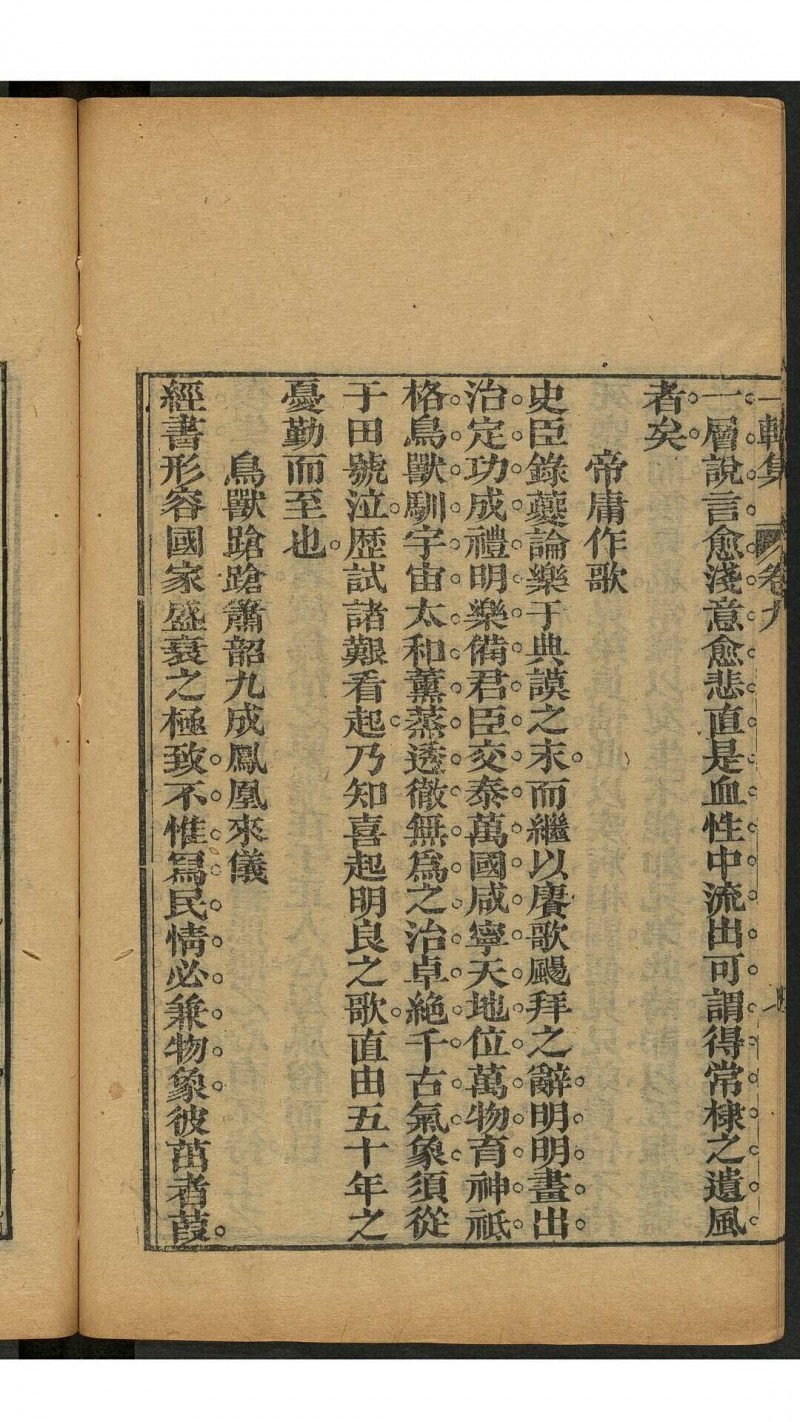 一輯集 卷九
一層說言愈淺意愈悲直是血性中流出可謂得常棣之遺風
者矣
帝庸作歌
史臣錄夔論樂于典謨之末而繼以賡歌颺拜之辭明明畫出
治定功成禮明樂備君臣交泰萬國咸寧天地位萬物育神祗
格鳥獸馴宇宙太和薰蒸透徹無爲之治卓絕千古氣象須從
于田號泣歷試諸艱看起乃知喜起明良之歌直由五十年之
憂勤而至也
鳥獸蹌蹌簫韶九成鳳凰來儀
經書形容國家盛衰之極致不惟寫民情必兼物象彼茁者葭